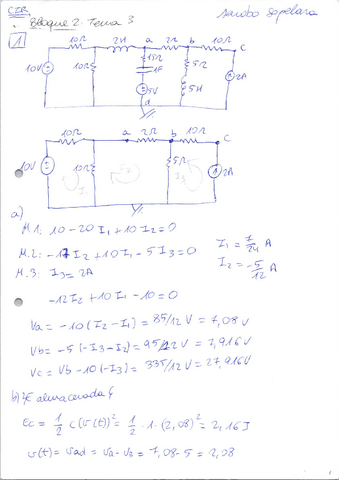 CTR
Bloque 2. Tema 3
1
10Ω 2H a 2Ω b 10Ω C
10V 10Ω 1F 5Ω 2A
5V 5H
d
10Ω a 2Ω b 10Ω C
10V 10Ω 5Ω 2A
I1 I2 I3
a)
M.1: 10-20I1+10I2=0
M.2: -17I2+10I1-5I3=0
M.3. I3=2A
I1 = 7/24 A
I2 = -5/12 A
-12I2+10I1-10=0
Va = -10(I2-I1) = 85/12 V = 7,08V
Vb = -5(-I3-I2) = 95/12 V = 7,916V
Vc = Vb-10(-I3) = 335/12 V = 27,916V
b) ¿E almacenada?
Ec = 1/2 C(v(t))² = 1/2 · 1 · (2,08)² = 2,16J
v(t) = vad = va - vd = 7,08-5 = 2,08